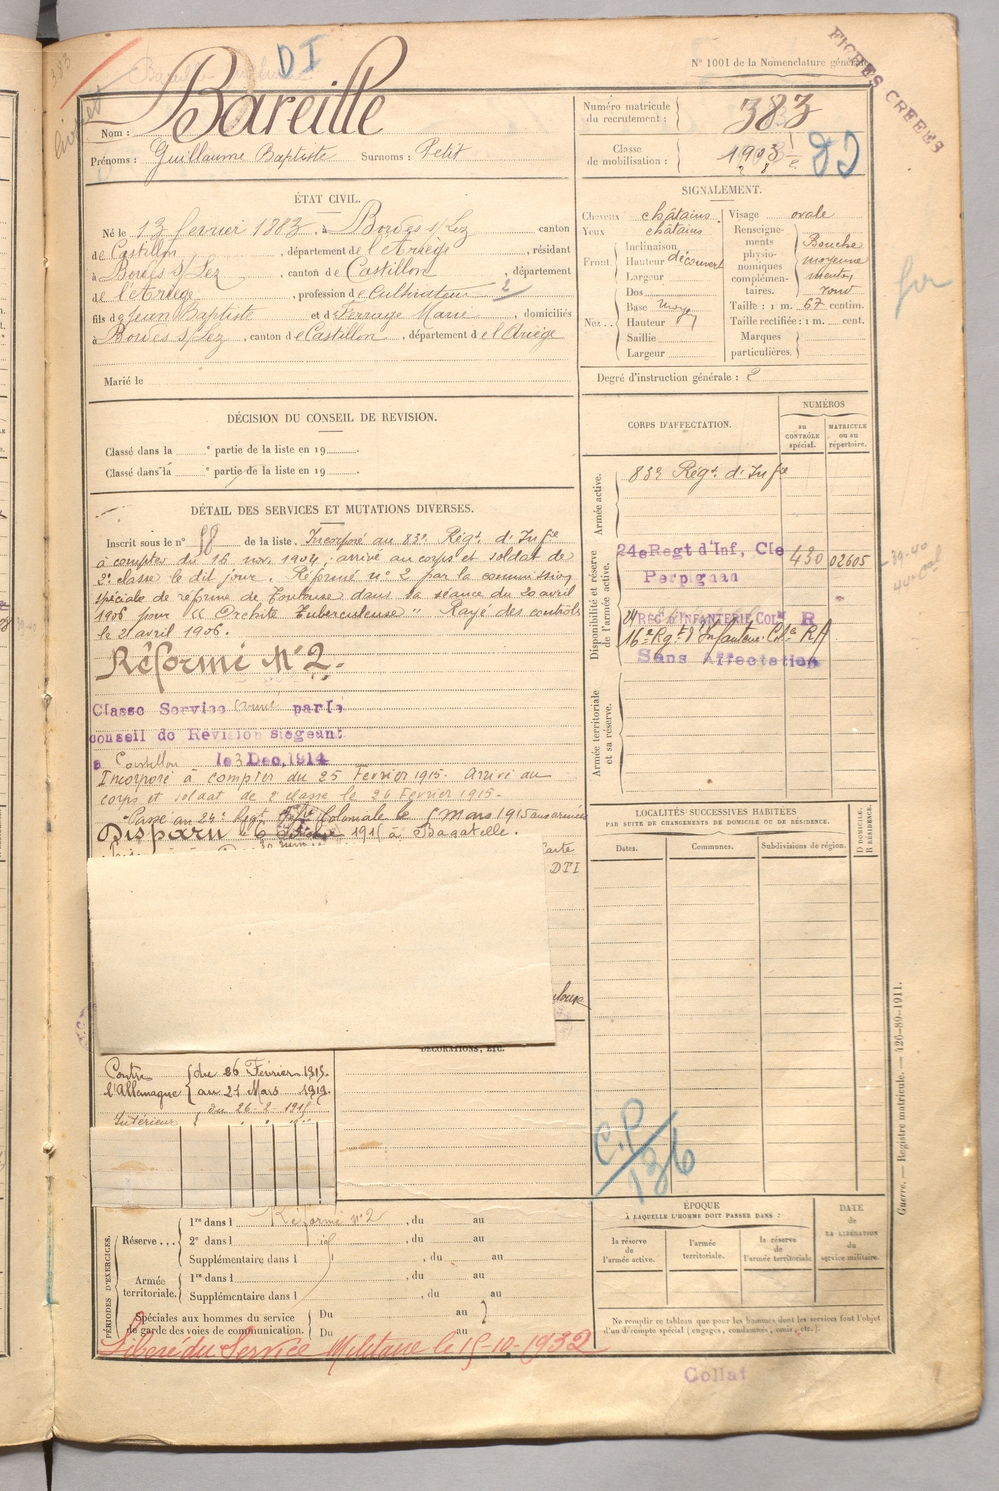 383
DI
N° 1001 de la Nomenclature générale
FICHES CRÉÉES
Nom : Bareille
Prénoms : Guillaume Baptiste Surnoms : Petit
Numéro matricule du recrutement : 383
Classe de mobilisation : 1903
ÉTAT CIVIL.
Né le 13 février 1883, à Bordes s/Lez canton
de Castillon, département de l'Ariège, résidant
à Bordes s/Lez, canton de Castillon, département
de l'Ariège, profession de Cultivateur 2
fils de Jean Baptiste et de Ferrage Marie, domiciliés
à Bordes s/Lez, canton de Castillon, département de l'Ariège
Marié le
DÉCISION DU CONSEIL DE REVISION.
Classé dans la e partie de la liste en 19
Classé dans la e partie de la liste en 19
DÉTAIL DES SERVICES ET MUTATIONS DIVERSES.
Inscrit sous le n° 58 de la liste. Incorporé au 83e Régt. d'Infie
à compter du 16 nov. 1904, arrivé au corps et soldat de
2e classe le dit jour. Réformé n° 2 par la commission
spéciale de réforme de Toulouse dans sa séance du 20 avril
1906 pour « Orchite Tuberculeuse » Rayé des contrôles
le 21 avril 1906.
Réformé N° 2.
Classé Service armé par le
conseil de Révision siégeant
à Castillon le 3 Dec. 1914
Incorporé à compter du 25 Février 1915. Arrivé au
corps et soldat de 2e classe le 26 Février 1915.
Passé au 24e Régt Infie Coloniale le Mars 1915
Disparu le 1915 à Bagatelle.
Carte
DTI
DÉCORATIONS, ETC.
Contre l'Allemagne { du 26 Février 1915.
au 21 Mars 1919.
Intérieur du 26-2 1915
PÉRIODES D'EXERCICES.
Réserve ... 1re dans l Réformé n° 2, du au
2e dans l, du au
Supplémentaire dans l, du au
Armée territoriale. 1re dans l, du au
Supplémentaire dans l, du au
Spéciales aux hommes du service de garde des voies de communication. Du au
Du au
Libéré du Service Militaire le 15-10-1932
SIGNALEMENT.
Cheveux châtains.
Yeux châtains
Front. Inclinaison
Hauteur découvert
Largeur
Nez .. Dos
Base moy
Hauteur
Saillie
Largeur
Visage ovale
Renseignements physionomiques complémentaires. Bouche moyenne menton rond
Taille : 1 m. 67 centim.
Taille rectifiée : 1 m. cent.
Marques particulières.
Degré d'instruction générale : 2
CORPS D'AFFECTATION.
NUMÉROS
au CONTRÔLE spécial.
MATRICULE ou au répertoire.
Armée active.
83e Régt. d'Infie
Disponibilité et réserve de l'armée active.
24e Regt d'Inf. Cle 430 02605
Perpignan
REG. D'INFANTERIE COLe R
16e Rgt d'Infanterie Cole R/A
Sans Affectation
39-40
Armée territoriale et sa réserve.
LOCALITÉS SUCCESSIVES HABITÉES
PAR SUITE DE CHANGEMENTS DE DOMICILE OU DE RÉSIDENCE.
Dates.
Communes.
Subdivisions de région.
D DOMICILE. R RÉSIDENCE.
C.P
136
ÉPOQUE
À LAQUELLE L'HOMME DOIT PASSER DANS :
la réserve de l'armée active.
l'armée territoriale.
la réserve de l'armée territoriale
DATE de LA LIBÉRATION du service militaire.
Ne remplir ce tableau que pour les hommes dont les services font l'objet
d'un décompte spécial (engagés, condamnés, omis, etc.).
Guerre. — Registre matricule. — 426-89-1911.
Collat